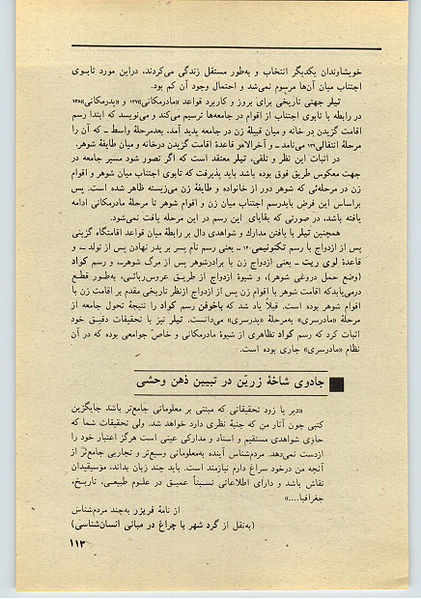 خویشاوندان یکدیگر انتخاب و به‌طور مستقل زندگی می‌کردند، دراین مورد تابوی
اجتناب میان آن‌ها مرسوم نمی‌شد و احتمال وجود آن کم بود.
تیلر جهتی تاریخی برای بروز و کاربرد قواعد «مادرمکانی»۱۳۷ و «پدرمکانی»۱۳۸
در رابطه با تابوی اجتناب از اقوام در جامعه‌ها ترسیم می‌کند و می‌نویسد که ابتدا رسم
اقامت گزیدن در خانه و میان قبیلهٔ زن در جامعه پدید آمد، بعدمرحلهٔ واسط ـ که آن را
مرحلهٔ انتقالی۱۳۹ می‌نامد ـ و آخرالامر قاعدهٔ اقامت گزیدن درخانه و میان طایفهٔ شوهر.
در اثبات این نظر و تلقی، تیلر معتقد است که اگر تصور شود مسیر جامعه در
جهت معکوس طریق فوق بوده باشد باید پذیرفت که تابوی اجتناب میان شوهر و اقوام
زن در مرحله‌ئی که شوهر دور از خانواده و طایفهٔ زن می‌زیسته ظاهر شده است. پس
براساس این فرض بایدرسم اجتناب میان زن و اقوام شوهر تا مرحلهٔ مادرمکانی ادامه
یافته باشد، در صورتی که بقایای این رسم در این مرحله یافت نمی‌شود.
همچنین تیلر با یافتن مدارك و شواهدی دال بر رابطهٔ میان قواعد اقامتگاه گزینی
پس از ازدواج با رسم تکنونیمی۱۴۰ ـ یعنی رسم نام پسر بر پدر نهادن پس از تولد ـ و
قاعدهٔ لوی ریت ـ یعنی ازدواج زن با برادرشوهر پس از مرگ شوهرـ و رسم کواد
(وضع حمل دروغی شوهر)، و شیوهٔ ازدواج از طریق عروس‌ربائی، به‌طور قطع
درمی‌یابدکه اقامت شوهر با اقوام زن پس از ازدواج ازنظر تاریخی مقدم بر اقامت زن با
اقوام شوهر بوده است. قبلاً یاد شد که باخوفن رسم کواد را نتیجهٔ تحول جامعه از
مرحلهٔ «مادرسری» به‌مرحلهٔ «پدرسری» می‌دانست. تیلر نیز با تحقیقات دقیق خود
اثبات کرد که رسم کواد تظاهری از شیوهٔ مادرمکانی و خاص جوامعی بوده که در آن
نظام «مادرسری» جاری بوده است.
جادوی شاخهٔ زرین در تبیین ذهن وحشی
«دیر یا زود تحقیقاتی که مبتنی بر معلوماتی جامع‌تر باشد جایگزین
کتبی چون آثار من که جنبهٔ نظری دارد خواهد شد. ولی تحقیقات شما که
حاوی شواهدی مستقیم و اسناد و مدارکی عینی است هرگز اعتبار خود را
ازدست نمی‌دهد. مردم‌شناس آینده به‌معلوماتی وسیع‌تر و تجاربی جامع‌تر از
آنچه من درخود سراغ دارم نیازمند است. باید چند زبان بداند، موسیقیدان
نقاش باشد و دارای اطلاعاتی نسبتاً عمیق در علوم طبیعی، تاریخ،
جغرافیا....»
از نامهٔ فریزر به‌چند مردم‌شناس
(به‌نقل از گرد شهر با چراغ در مبانی انسان‌شناسی)
۱۱۳